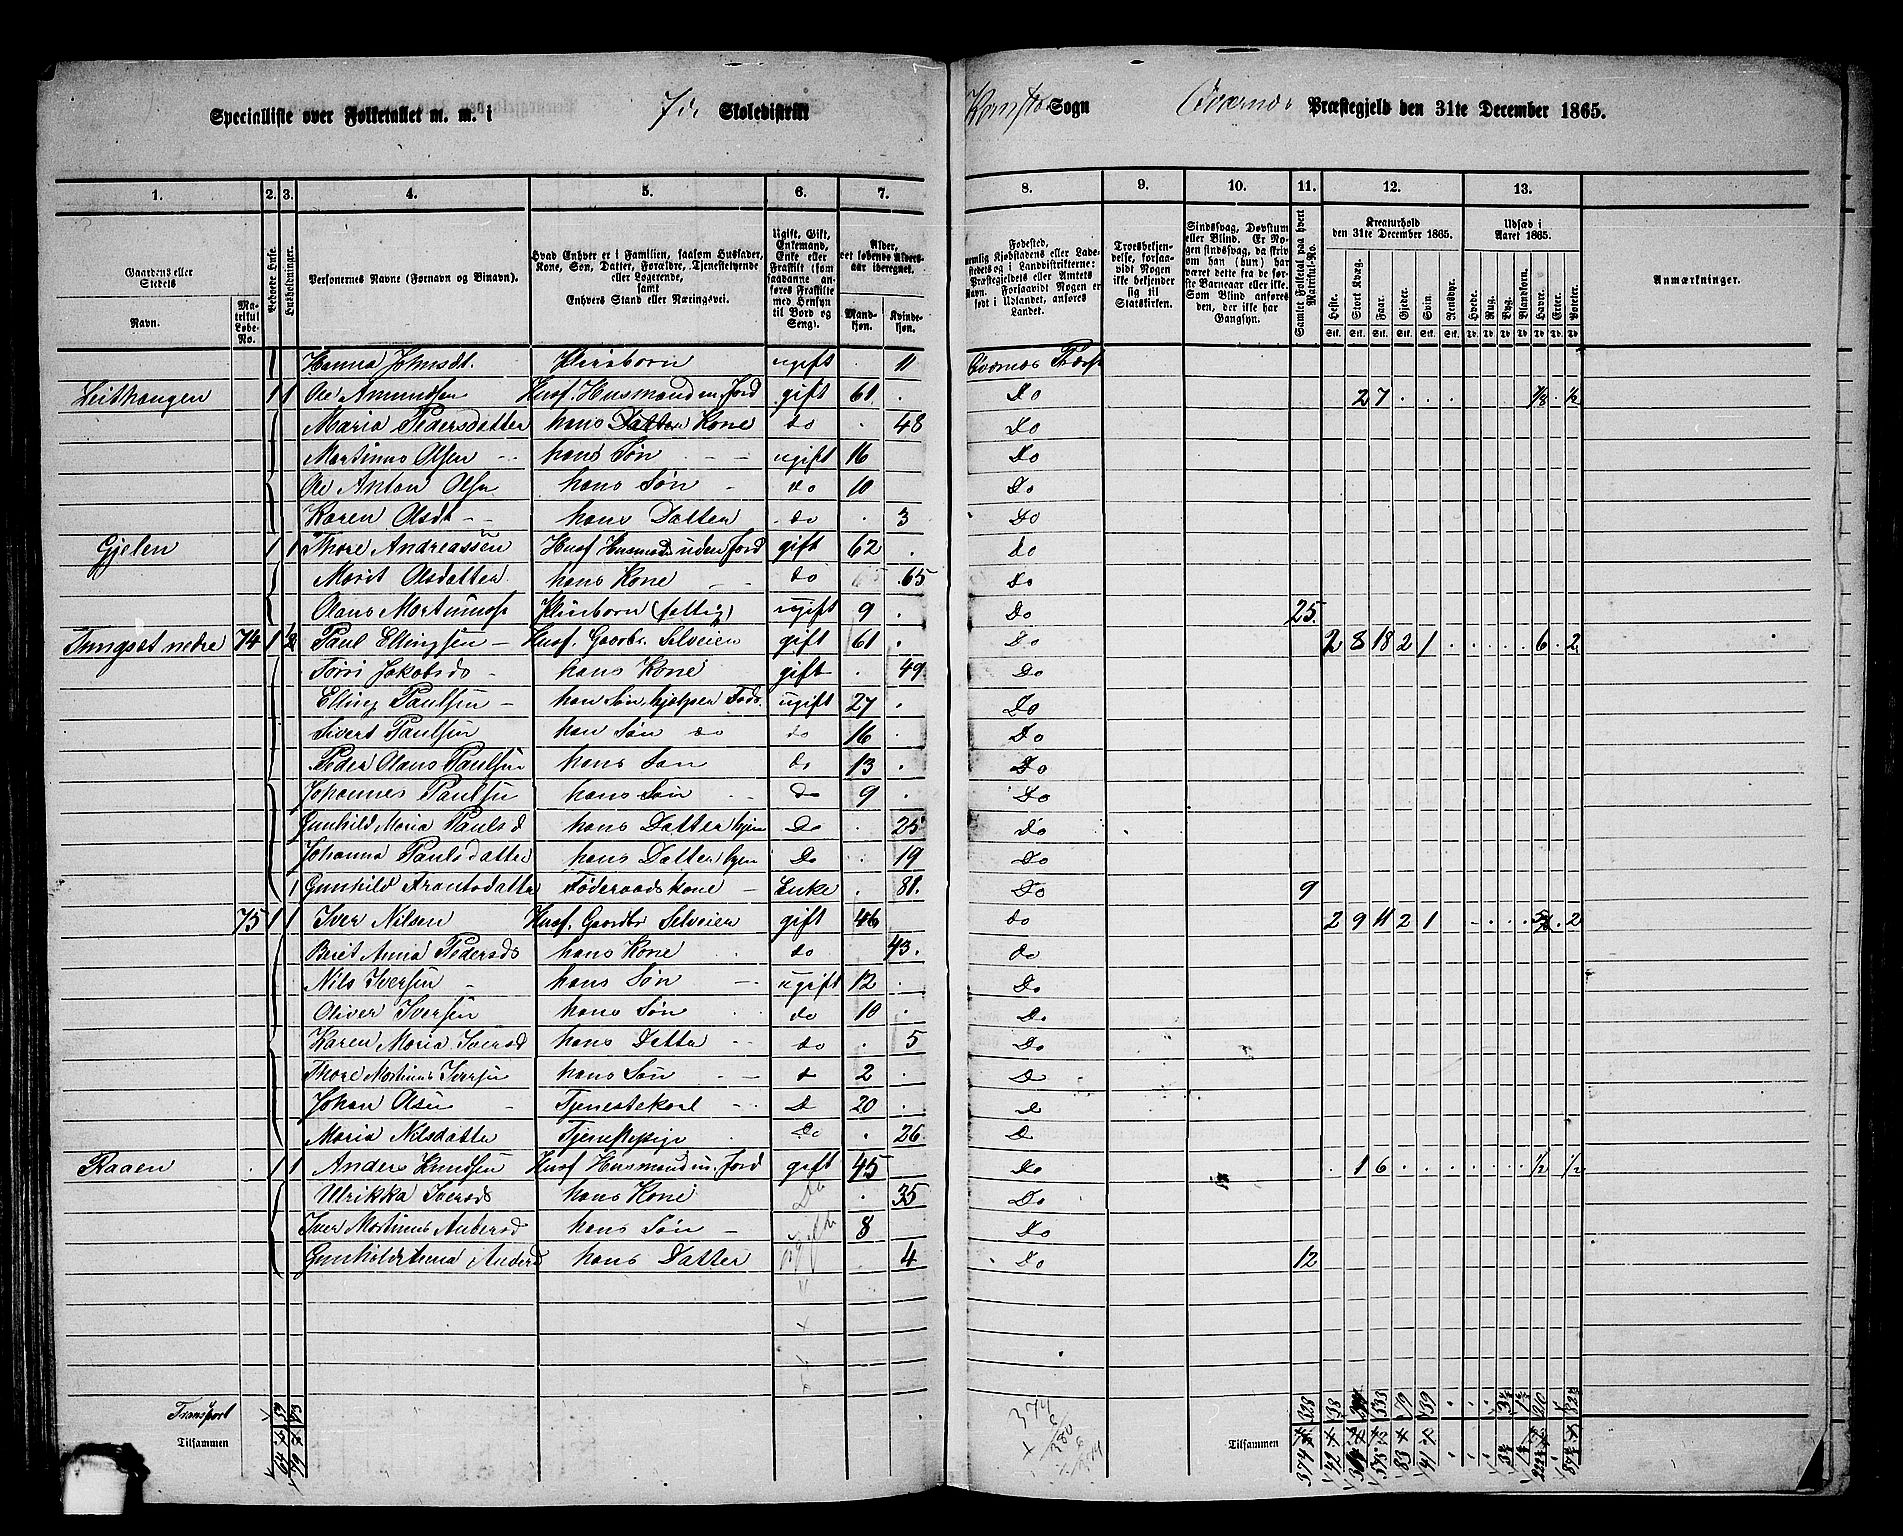 Specialliste over Folketallet m. m. i 7de Skoledistrikt Sogn Præstegjeld den 31te December 1865.
1. 2. 3. 4. 5. 6. 7. 8. 9. 10. 11. 12. 13.
Gaardens eller Stedets Navn.
Matrikul Løbe-No.
Beboede Huse.
Husholdninger.
Personernes Navne (Fornavn og Binavn).
Hvad Enhver er i Familien, saasom Husfader, Kone, Søn, Datter, Forældre, Tjenestetyende eller Logerende, samt Enhvers Stand eller Næringsvei.
Ugift, Gift, Enkemand, Enke eller Fraskilt (som saadanne anføres Fraskilte med Hensyn til Bord og Seng).
Alder, det løbende Aldersaar iberegnet.
Mandkjøn. Kvindekjøn.
Troesbekjendelse, forsaavidt Nogen ikke bekjender sig til Statskirken.
Sindssvag, Døvstum eller Blind. Er Nogen sindssvag, da skrives om han (hun) har været dette fra de første Barneaar eller ikke. Som Blind anføres den, der ikke har Gangsyn.
Samlet Folketal paa hvert Matrikul-No.
Kreaturhold den 31te December 1865.
Heste. Stort Kvæg. Faar. Gjeder. Svin. Rensdyr.
Udsæd i Aaret 1865.
Hvede. Rug. Byg. Blandkorn. Havre. Erter. Poteter.
Anmærkninger.
1 Hanna Johnsdt. Pleiebarn ugift 11
Leithaugen 1 1 Ole Amundsen Husf. Husmand m. Jord gift 61 . Do 2 7 1/2
Maria Pedersdatter hans Kone do . 48 Do
Martinus Olsen hans Søn ugift 16 Do
Ole Anton Olsn hans Søn do 10 Do
Karen Olsdt hans Datter do . 3 Do
Gjelen 1 1 Thore Andreassen Husf Husmd uden Jord gift 62 . do
Marit Olsdatter hans Kone do 65 Do
Olaus Martinuss Pleiebarn (fattig) ugift 9 . Do 25.
nedre 74 1 2 Paul Ellingsen Husf. Gaardbr Selveier gift 61 . Do 2 8 18 2 1 6 2
Jakobsd hans Kone gift . 49 Do
Elling Paulsen han Søn, hjelper Fad. ugift 27 . Do
Sivert Paulsen han Søn do do 16 . Do
Peder Olaus Paulsen hans Søn do 13 . Do
Johannes Paulsen hans Søn do 9 . Do
Gunhild Maria Paulsd hans Datter hjem Do . 25 Do
Johanna Paulsdatter hans Datter hjem Do . 19 Do
1 Gunhild Arantsdatter Føderaadskone Enke . 81. Do 9
75 1 1 Iver Nilsen Husf. Gaardbr Selveier gift 46 do 2 9 11 2 1 2
Beret Anna Pedersd hans Kone do 43. do
Nils Iversen hans Søn ugift 12 . Do
Oliver Iversen hans Søn do 10 . Do
Karen Maria Iversd hans Datter do . 5 Do
Thore Martinus Iversen hans Søn d 2 . D
Johan Olsen Tjenestekarl D 20 . D
Maria Nilsdatter Tjenestepige Do . 26 D
Raaen 1 1 Anders Knudsen Husf Husmand m. Jord gift 45 do 1 6 1/2 1/2
Ulrikka Iversd hans Kone Do . 35 Do
Iver Martinus Andersd hans Søn ugift 8 Do
Gunhild Anders hans Datter 4 Do 12
Transport
Tilsammen Tilsammen 374